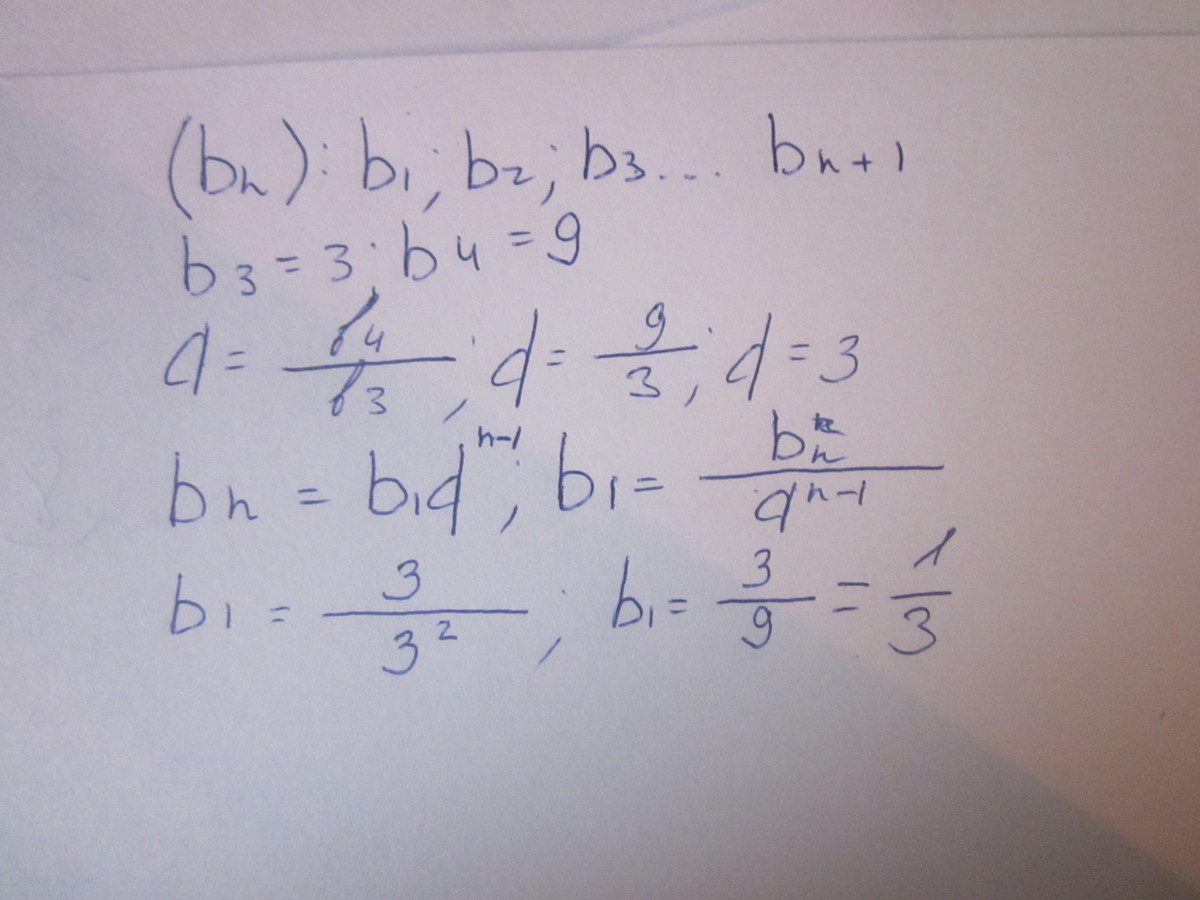 (bn): b1; b2; b3... bn+1
b3 = 3; b4 = 9
d = b4/b3; d = 9/3; d = 3
bn = b1d^n-1; b1 = bn/d^n-1
b1 = 3/3^2; b1 = 3/9 = 1/3